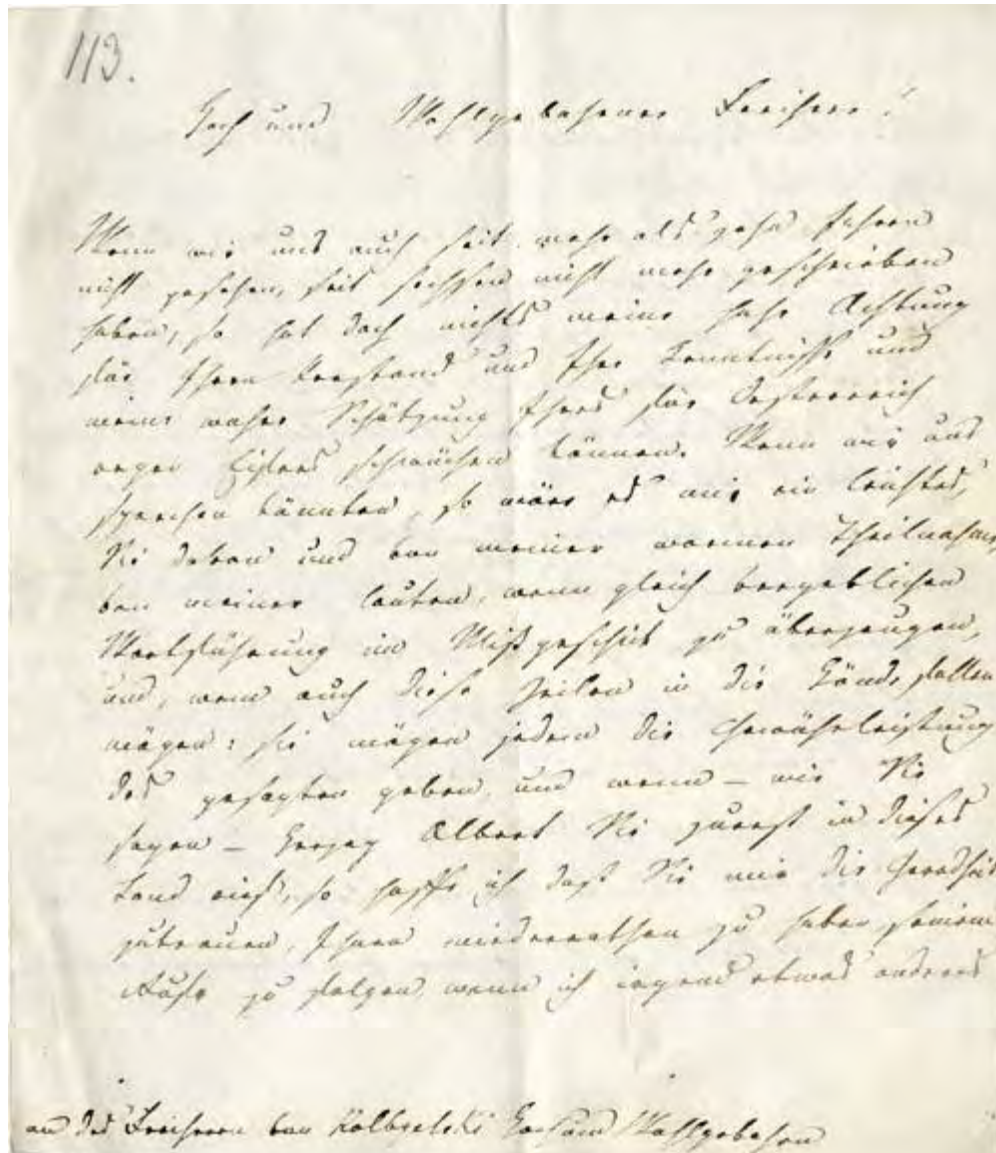 113.
Hoch und Wohlgebohrner Freiherr!
Wenn wir uns auch seit mehr als zehn Jahren
nicht gesehen, seit sechsen nicht mehr geschrieben
haben, so hat doch nichts meine hohe Achtung
für Ihren Verstand und Ihre Kenntnisse und
meine wahre Schätzung Ihres für Oesterreich
regen Eifers schwächen können. Wenn wir uns
sprechen könnten, so wäre es mir ein leichtes,
Sie davon und von meiner warmen Theilnahme,
von meiner lauten, wenn gleich vergeblichen
Wortführung im Mißgeschick zu überzeugen,
und, wem auch diese Zeilen in die Hände fallen
mögen: sie mögen jedem die Gewährleistung
des gesagten geben, und wenn – wie Sie
sagen – Herzog Albert Sie zuerst in dieses
Land rief, so hoffe ich daß Sie mir die Geradheit
zutrauen, Ihnen wiederrathen zu haben seinem
Rufe zu folgen, wenn ich irgend etwas anderes
an des Freiherrn von Kolbielski Hoch und Wohlgebohren